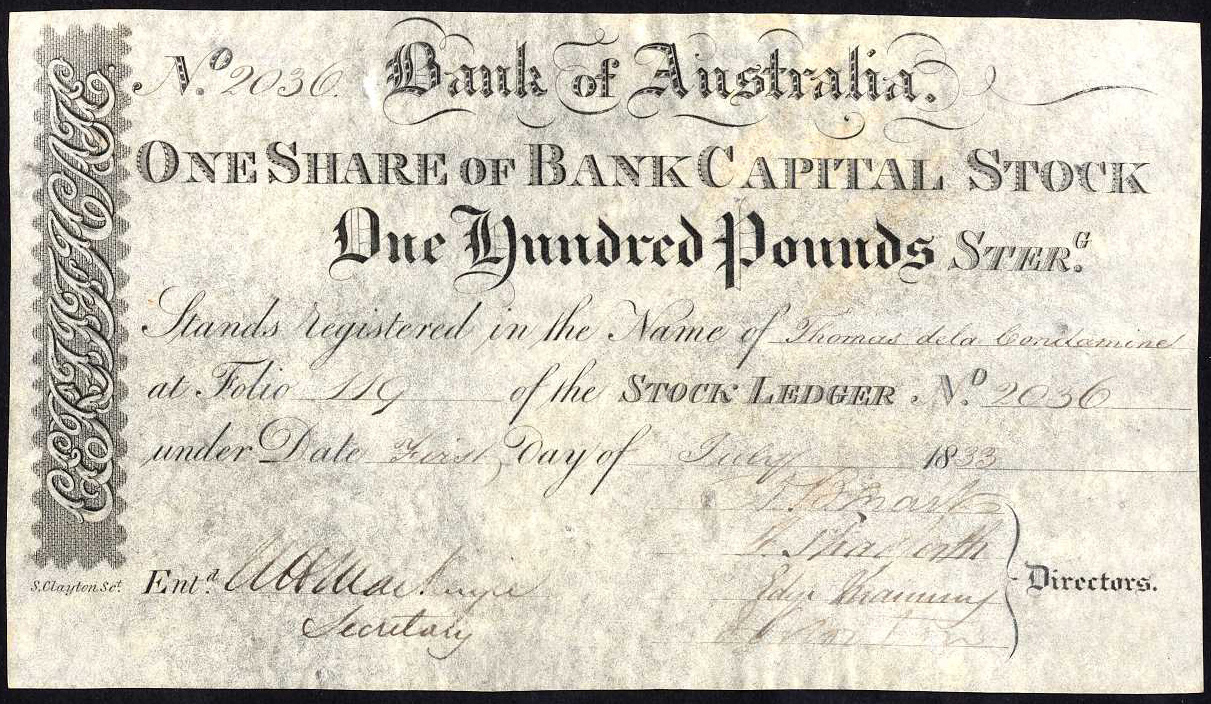 CERTIFICATE
No. 2036. Bank of Australia.
ONE SHARE OF BANK CAPITAL STOCK
One Hundred Pounds STER.G
Stands registered in the Name of Thomas de la Condamine
at Folio 119 of the STOCK LEDGER No. 2036
under Date First Day of July 1833
Directors.
S. Clayton Sct.
Entd. Mackenzie
Secretary